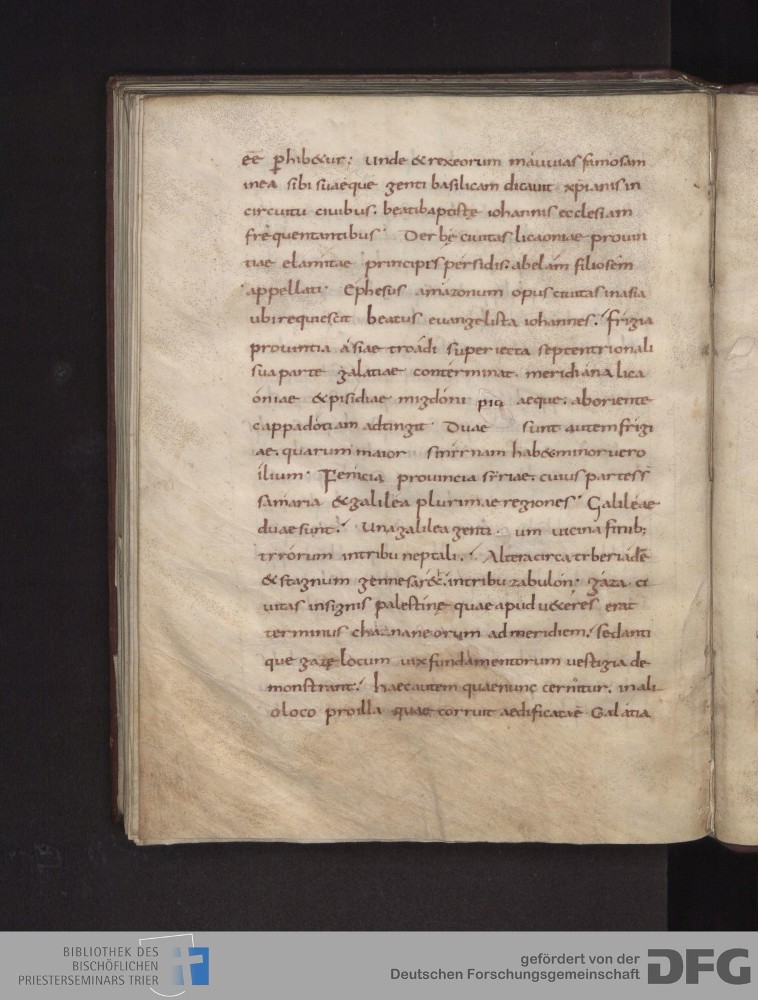 eē ꝑhib&ur; Unde & rex eorum mauuias famosam
in ea sibi suaeque genti basilicam dicauit xpianis in
circuitu ciuibus. beati baptistę iohannis ecclesiam
frequentantibus· Derbe ciuitas licaoniae prouin
tiae elamitae principes persidis. ab elam filio sem
appellati· Ephesus amazonum opus ciuitas in asia
ubi requiescit beatus euangelista iohannes. frigia
prouintia asiae troadi superiecta septentrionali
sua parte galatiae conterminat. meridiana lica
oniae & pisidiae migdoni aeque. ab oriente
cappadotiam adtingit· Duae sunt autem frigi
ae. quarum maior smirnam hab& minor uero
ilium· Fenicia prouincia siriae. cuius partes s̄
samaria & galilea plurimae regiones· Galileae
duae sunt. Una galilea genti um uicina finib;
tirorum in tribu neptali. Altera circa tiberiadē
& stagnum gennesar&. in tribu zabulon· gaza ci
uitas insignis palestinę quae apud u&eres erat
terminus chananeorum ad meridiem. sed anti
quę gazę locum uix fundamentorum uestigia de
monstrant. haec autem quae nunc cernitur. in ali
o loco pro illa quae corruit aedificata ē Galatia
BIBLIOTHEK DES
BISCHÖFLICHEN
PRIESTERSEMINARS TRIER
gefördert von der
Deutschen Forschungsgemeinschaft
DFG